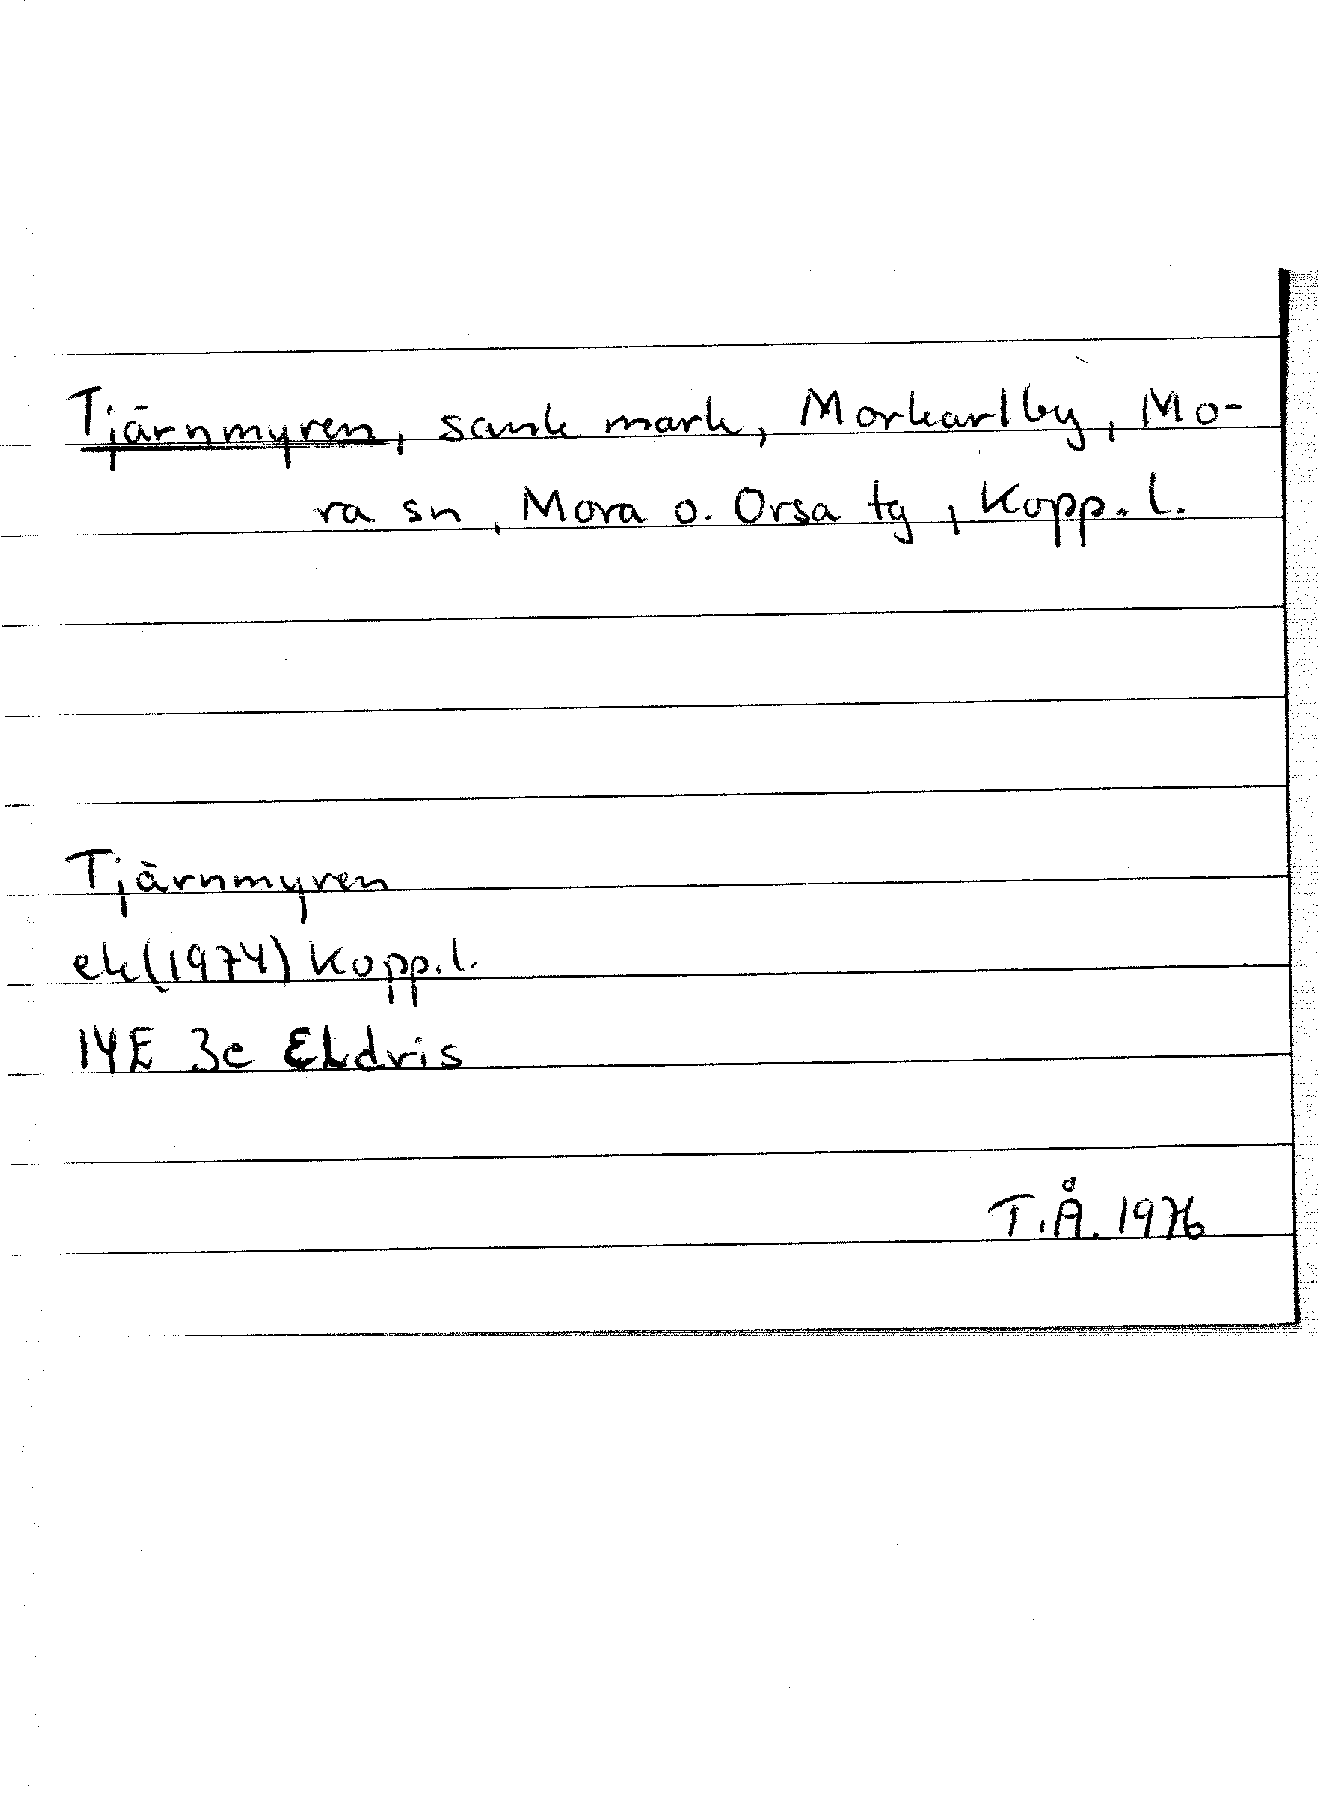 Tjärnmyren, sank mark, Morkarlby, Mo-
ra sn, Mora o. Orsa tg, Kopp. l.
Tjärnmyren
ek (1974) Kopp. l.
14E 3c Eldris
T.Å. 1976